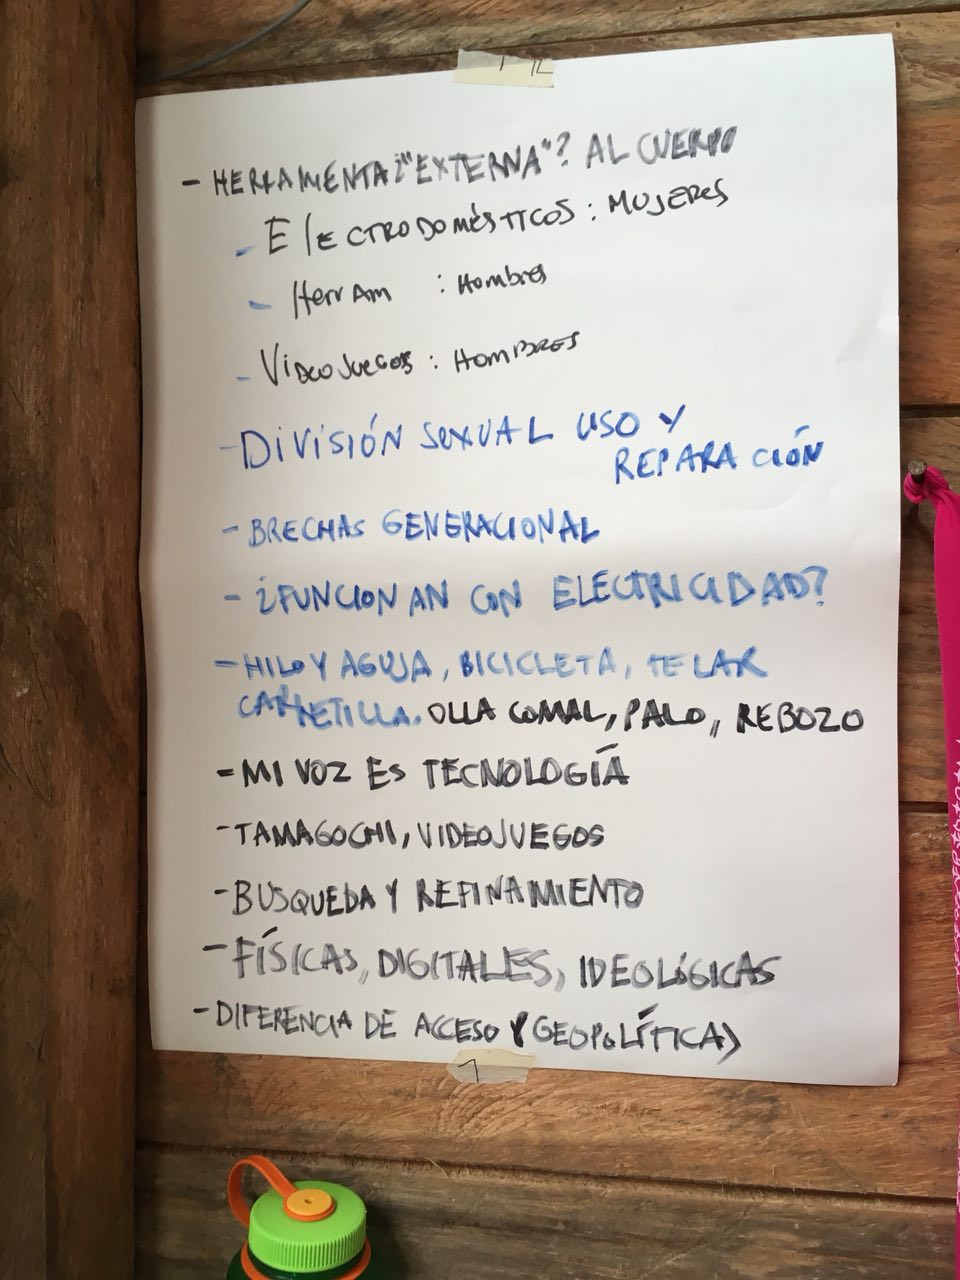 - HERRAMIENTA ¿"EXTERNA"? AL CUERPO
- ElECTRODOMÉSTICOS : MUJERES
- Herram : Hombres
- VideoJuegos : HOMBRES
- DIVISIÓN SEXUAL USO Y
REPARACIÓN
- BRECHAS GENERACIONAL
- ¿FUNCIONAN CON ELECTRICIDAD?
- HILO Y AGUJA, BICICLETA, TELAR
CARRETILLA. OLLA COMAL, PALO, REBOZO
- MI VOZ ES TECNOLOGÍA
- TAMAGOCHI, VIDEOJUEGOS
- BUSQUEDA Y REFINAMIENTO
- FÍSICAS, DIGITALES, IDEOLÓGICAS
- DIFERENCIA DE ACCESO (GEOPOLÍTICA)